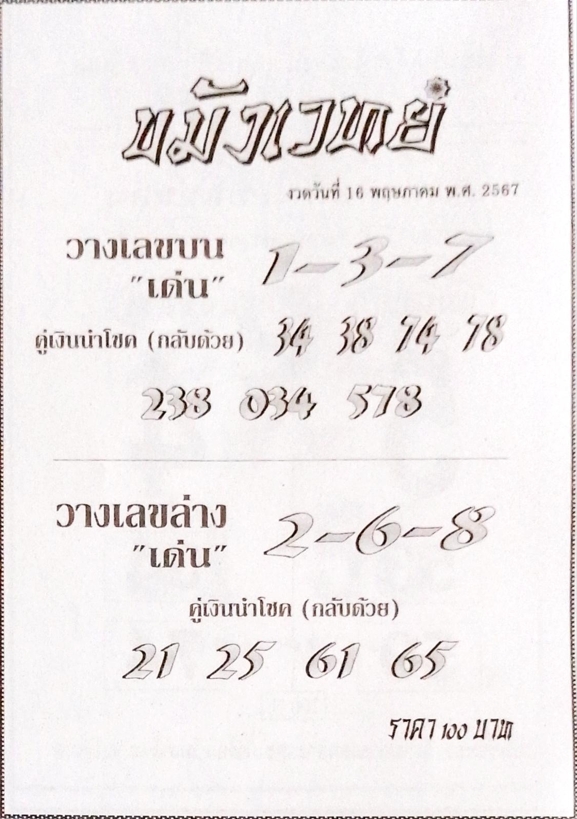 ขมังเวทย์
งวดวันที่ 16 พฤษภาคม พ.ศ. 2567
วางเลขบน "เด่น" 1-3-7
คู่เงินนำโชค (กลับด้วย) 34 38 74 78
238 034 578
วางเลขล่าง "เด่น" 2-6-8
คู่เงินนำโชค (กลับด้วย)
21 25 61 65
ราคา 100 บาท